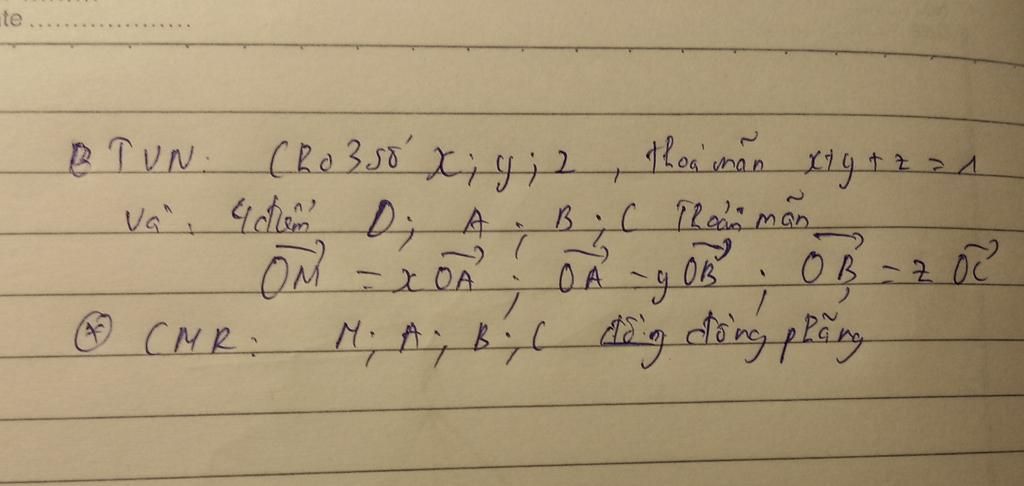 te ....................
BTVN: Cho 3 số x; y; z, thoả mãn x+y+z=1
và: 4 điểm O; A; B; C Thoả mãn
OM = x OA; OA = y OB; OB = z OC
* CMR: M; A; B; C đồng đồng phẳng